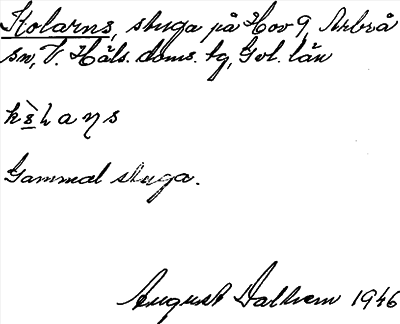 Kolarns, stuga på Hov 9, Arbrå
sn, V. Häls. doms. tg, Gvl. län
Gammal stuga.
August Dalhem 1946